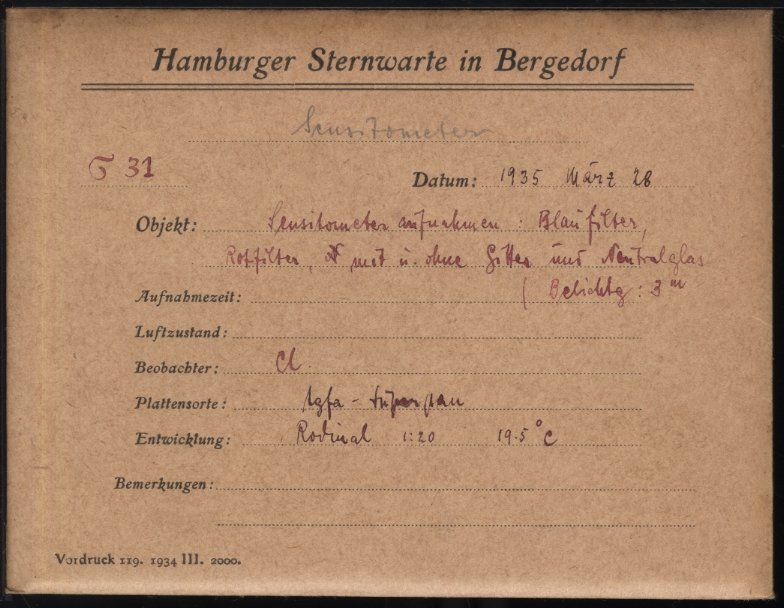 Hamburger Sternwarte in Bergedorf
Sensitometer
G 31
Datum: 1935 März 28
Objekt: Sensitometeraufnahmen: Blaufilter,
Rotfilter, mit u. ohne Gitter und Neutralglas
Aufnahmezeit: (Belichtg: 3 m
Luftzustand:
Beobachter: Cl.
Plattensorte: Agfa - Superpan
Entwicklung: Rodinal 1:20 19.5 °C
Bemerkungen:
Vordruck 119. 1934 III. 2000.